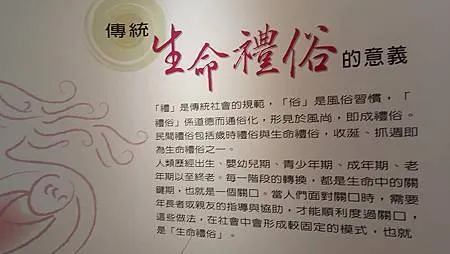 傳統
生命禮俗的意義
「禮」是傳統社會的規範，「俗」是風俗習慣，「
禮俗」係道德而通俗化，形見於風尚，即成禮俗。
民間禮俗包括歲時禮俗與生命禮俗，收涎、抓週即
為生命禮俗之一。
人類歷經出生、嬰幼兒期、青少年期、成年期、老
年期以至終老。每一階段的轉換，都是生命中的關
鍵期，也就是一個關口。當人們面對關口時，需要
年長者或親友的指導與協助，才能順利度過關口，
這些做法，在社會中會形成較固定的模式，也就
是「生命禮俗」。